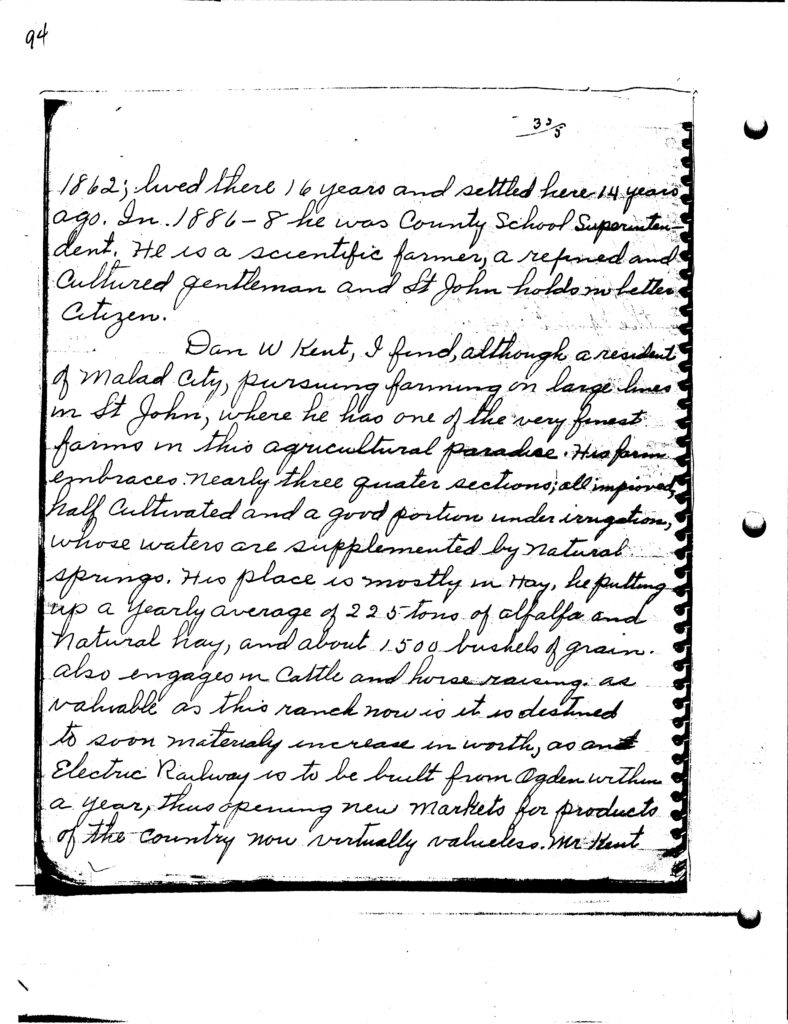 94
33/5
1862; lived there 16 years and settled here 14 years
ago. In 1886-8 he was County School Superinten-
dent. He is a scientific farmer, a refined and
Cultured gentleman and St John holds no better
Citizen.
Dan W Kent, I find, although a resident
of Malad City, pursuing farming on large lines
in St John, where he has one of the very finest
farms in this agricultural paradise. His farm
embraces nearly three quater sections; all improved,
half Cultivated and a good portion under irrigation,
whose waters are supplemented by Natural
springs. His place is mostly in Hay, he putting
up a Yearly average of 225 tons of alfalfa and
Natural hay, and about 1500 bushels of grain.
also engages in Cattle and horse raising. as
valuable as this ranch now is it is destined
to soon materialy increase in worth, as an
Electric Railway is to be built from Ogden within
a year, thus opening new markets for products
of the country now virtually valueless. Mr Kent